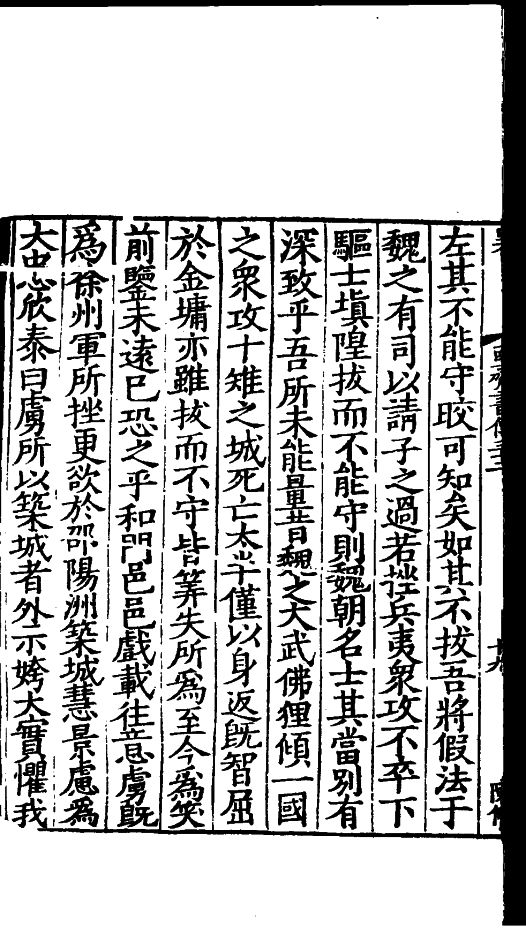 左其不能守皎可知矣如其不拔吾將假法于
魏之有司以請子之過若挫兵夷衆攻不卒下
驅士塡隍拔而不能守則魏朝名士其當別有
深致乎吾所未能量昔魏之大武佛狸傾一國
之衆攻十雉之城死亡太半僅以身返旣智屈
於金墉亦雖拔而不守皆筭失所爲至今爲笑
前鑒未遠已恐之乎和門邑邑戲載往意虜旣
爲徐州軍所挫更欲於邵陽洲築城慧景慮爲
大患欣泰曰虜所以築城者外示姱大實懼我